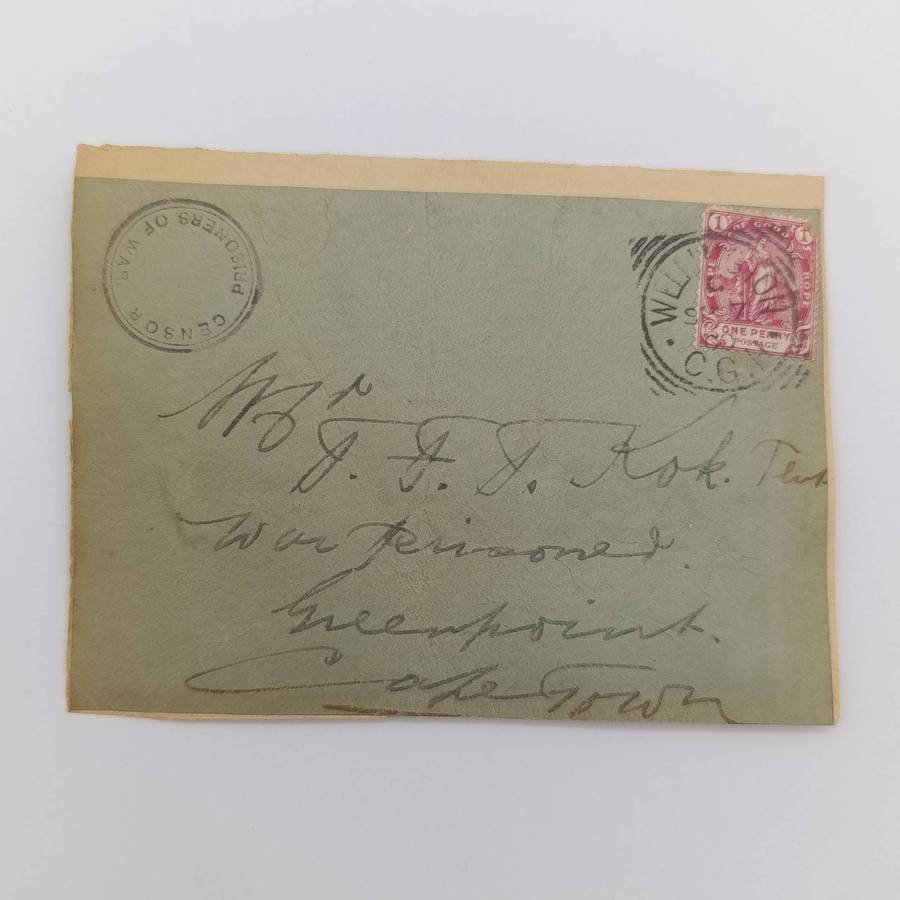 PRISONERS OF WAR. CENSOR
1 CAPE OF GOOD HOPE 1
ONE PENNY
POSTAGE
C.G.H
T. F. T. Kok. Tent
War Prisoner.
Greenpoint.
Cape Town